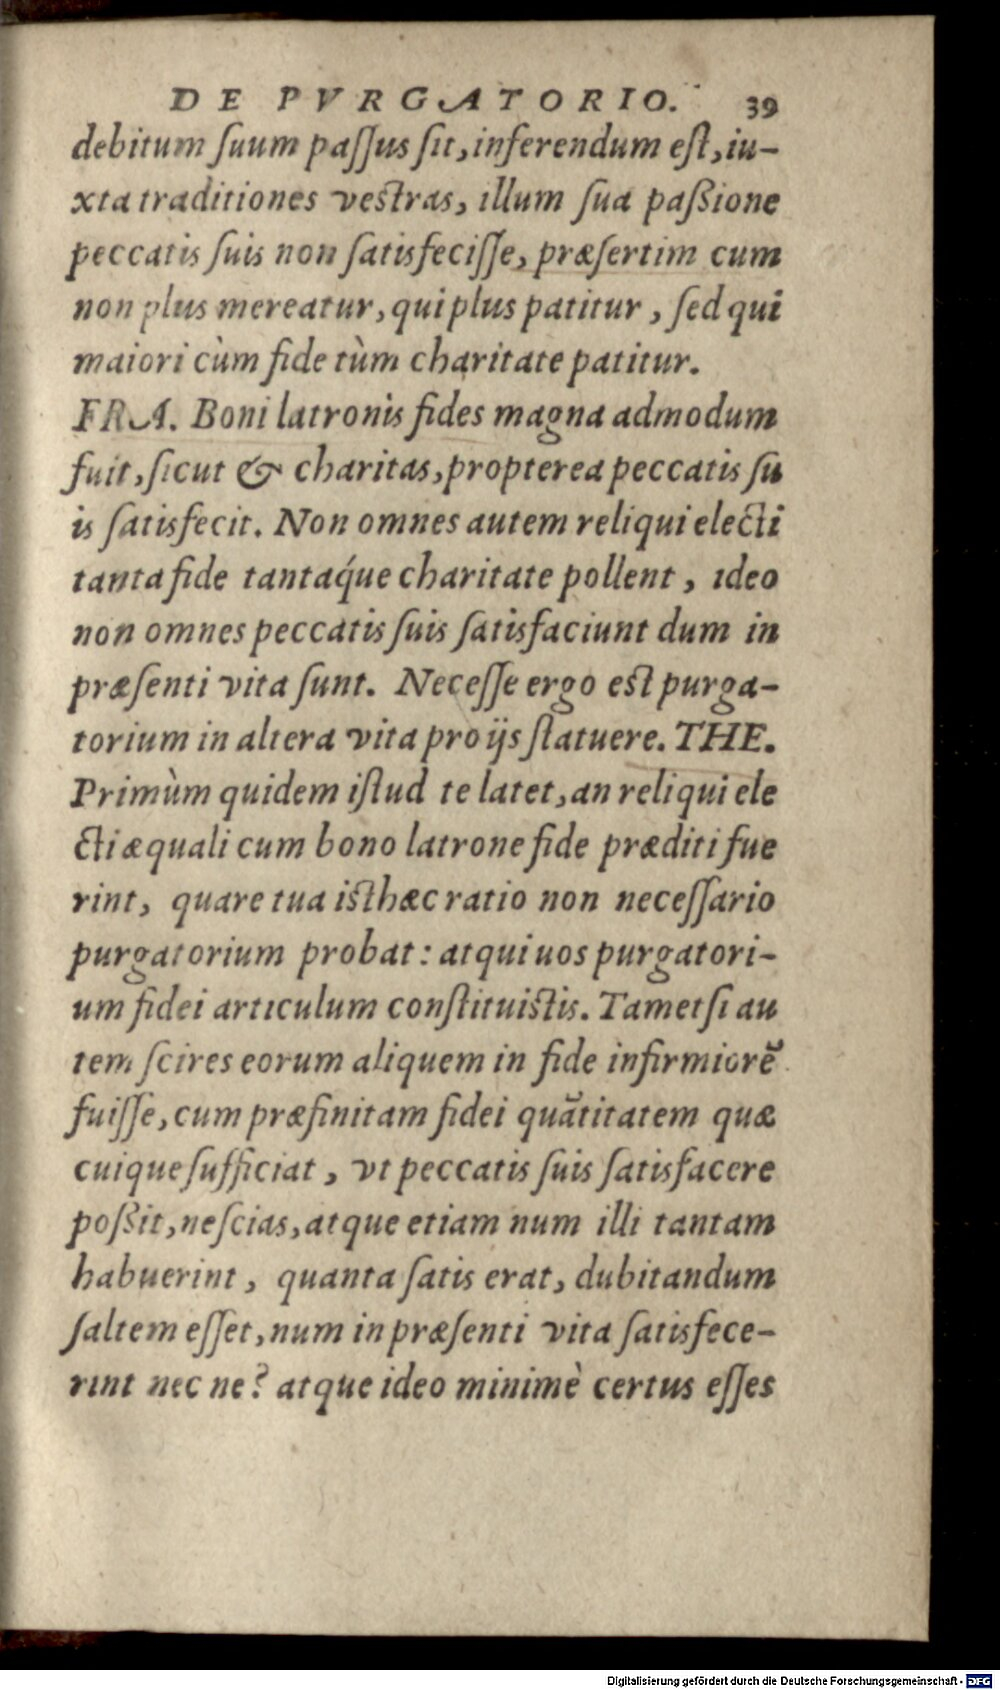 DE PVRGATORIO. 39
debitum ſuum paſſus ſit, inferendum eſt, iu-
xta traditiones vestras, illum ſua paßione
peccatis ſuis non ſatisfeciſſe, præſertim cum
non plus mereatur, qui plus patitur, ſed qui
maiori cùm fide tùm charitate patitur.
FRA. Boni latronis fides magna admodum
fuit, ſicut & charitas, propterea peccatis ſu
is ſatisfecit. Non omnes autem reliqui electi
tanta fide tantaq́ue charitate pollent, ideo
non omnes peccatis ſuis ſatisfaciunt dum in
præſenti vita ſunt. Neceſſe ergo est purga-
torium in altera vita pro ijs ſtatuere. THE.
Primùm quidem iſtud te latet, an reliqui ele
cti æquali cum bono latrone fide præditi fue
rint, quare tua isthæc ratio non neceſſario
purgatorium probat: atqui uos purgatori-
um fidei articulum conſtituistis. Tametſi au
tem ſcires eorum aliquem in fide infirmiorẽ
fuiſſe, cum præfinitam fidei quãtitatem quæ
cuique ſufficiat, vt peccatis ſuis ſatisfacere
poßit, neſcias, atque etiam num illi tantam
habuerint, quanta ſatis erat, dubitandum
ſaltem eſſet, num in præſenti vita ſatisfece-
rint nec ne? atque ideo minimè certus eſſes
Digitalisierung gefördert durch die Deutsche Forschungsgemeinschaft - DFG